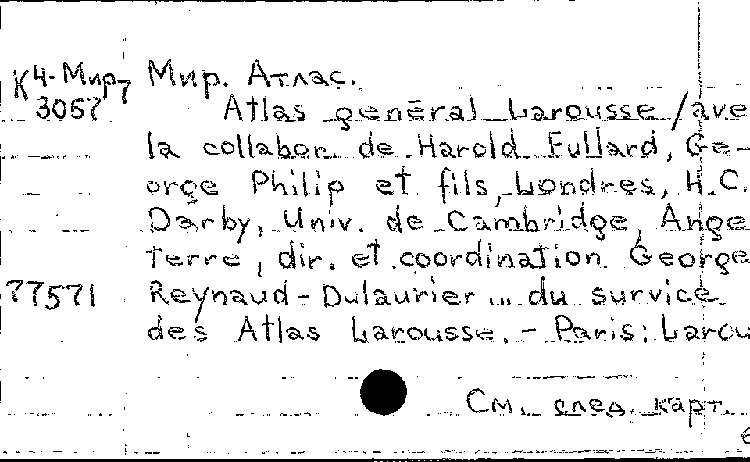 К4-Мир Мир. Атлас.
3057 Atlas général Larousse / ave
la collabor. de Harold Fullard, Ge-
orge Philip et fils, Londres, H.C.
Darby, Univ. de Cambridge, Ange
terre, dir. et coordination George
77571 Reynaud-Dulaurier ... du survice
des Atlas Larousse. - Paris: Larou
См. след. карт.